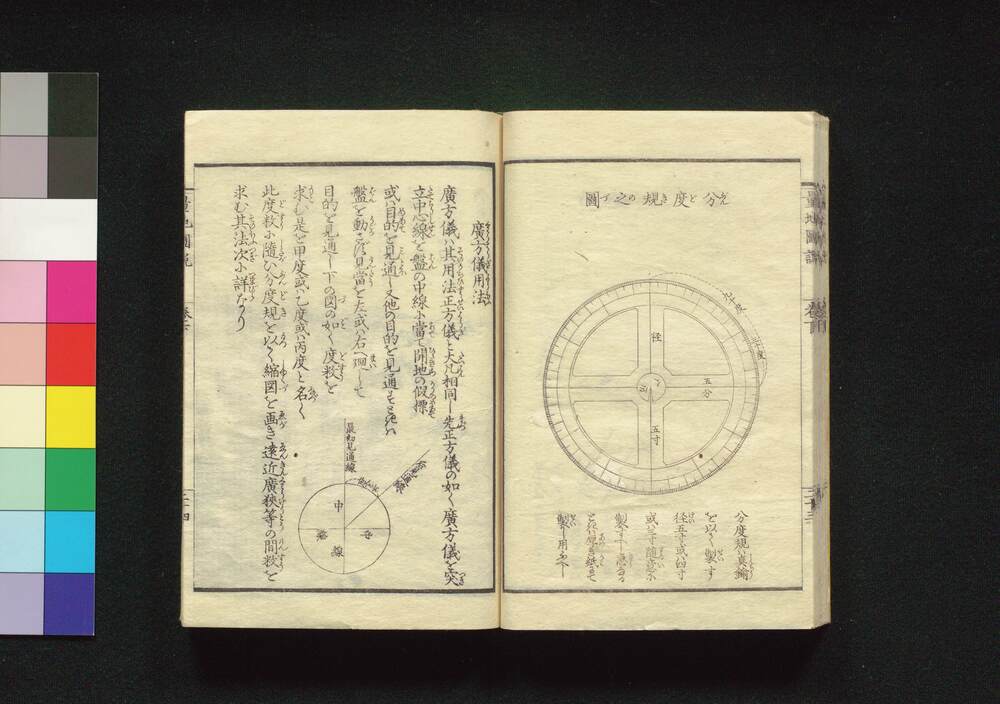 分度規之圖
径
五分
五寸
分度規ハ真鍮
を以て製す
径五寸或ハ四寸
或ハ三寸随意に
製すべし
製し用ゆべし
廣方儀用法
廣方儀ハ其用法正方儀と大凡相同し先正方儀の如く廣方儀を突
立中心線を盤の中線に當て開地の假標
或ハ目的を見通し又他の目的を見通すときハ
盤を動さず見當を左或ハ右へ廻して
目的を見通し下の図の如く度数を
求む是を甲度或ハ乙度或ハ丙度と名く
此度数に随ひ分度規を以て縮図を画き遠近廣狭等の間数を
求む其法次に詳なり
最初見通線
中
線
二十四